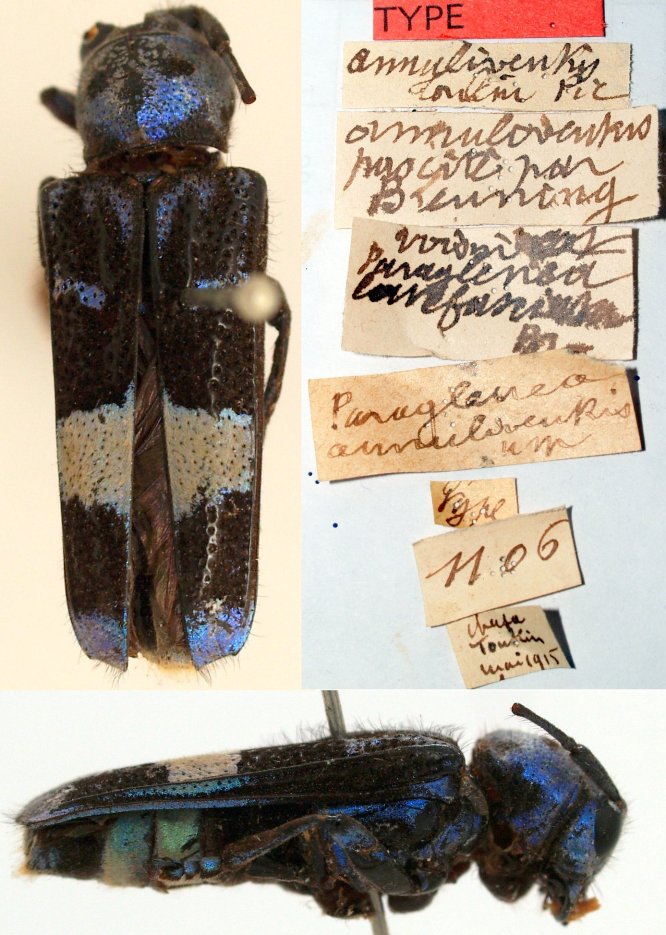 TYPE
annuliventris
Tonkin Pic
annuloventris
par
Breuning
Paraglenea
Br
Paraglenea
annuloventris
um
Type
11 06
Chapa
Tonkin
mai 1915